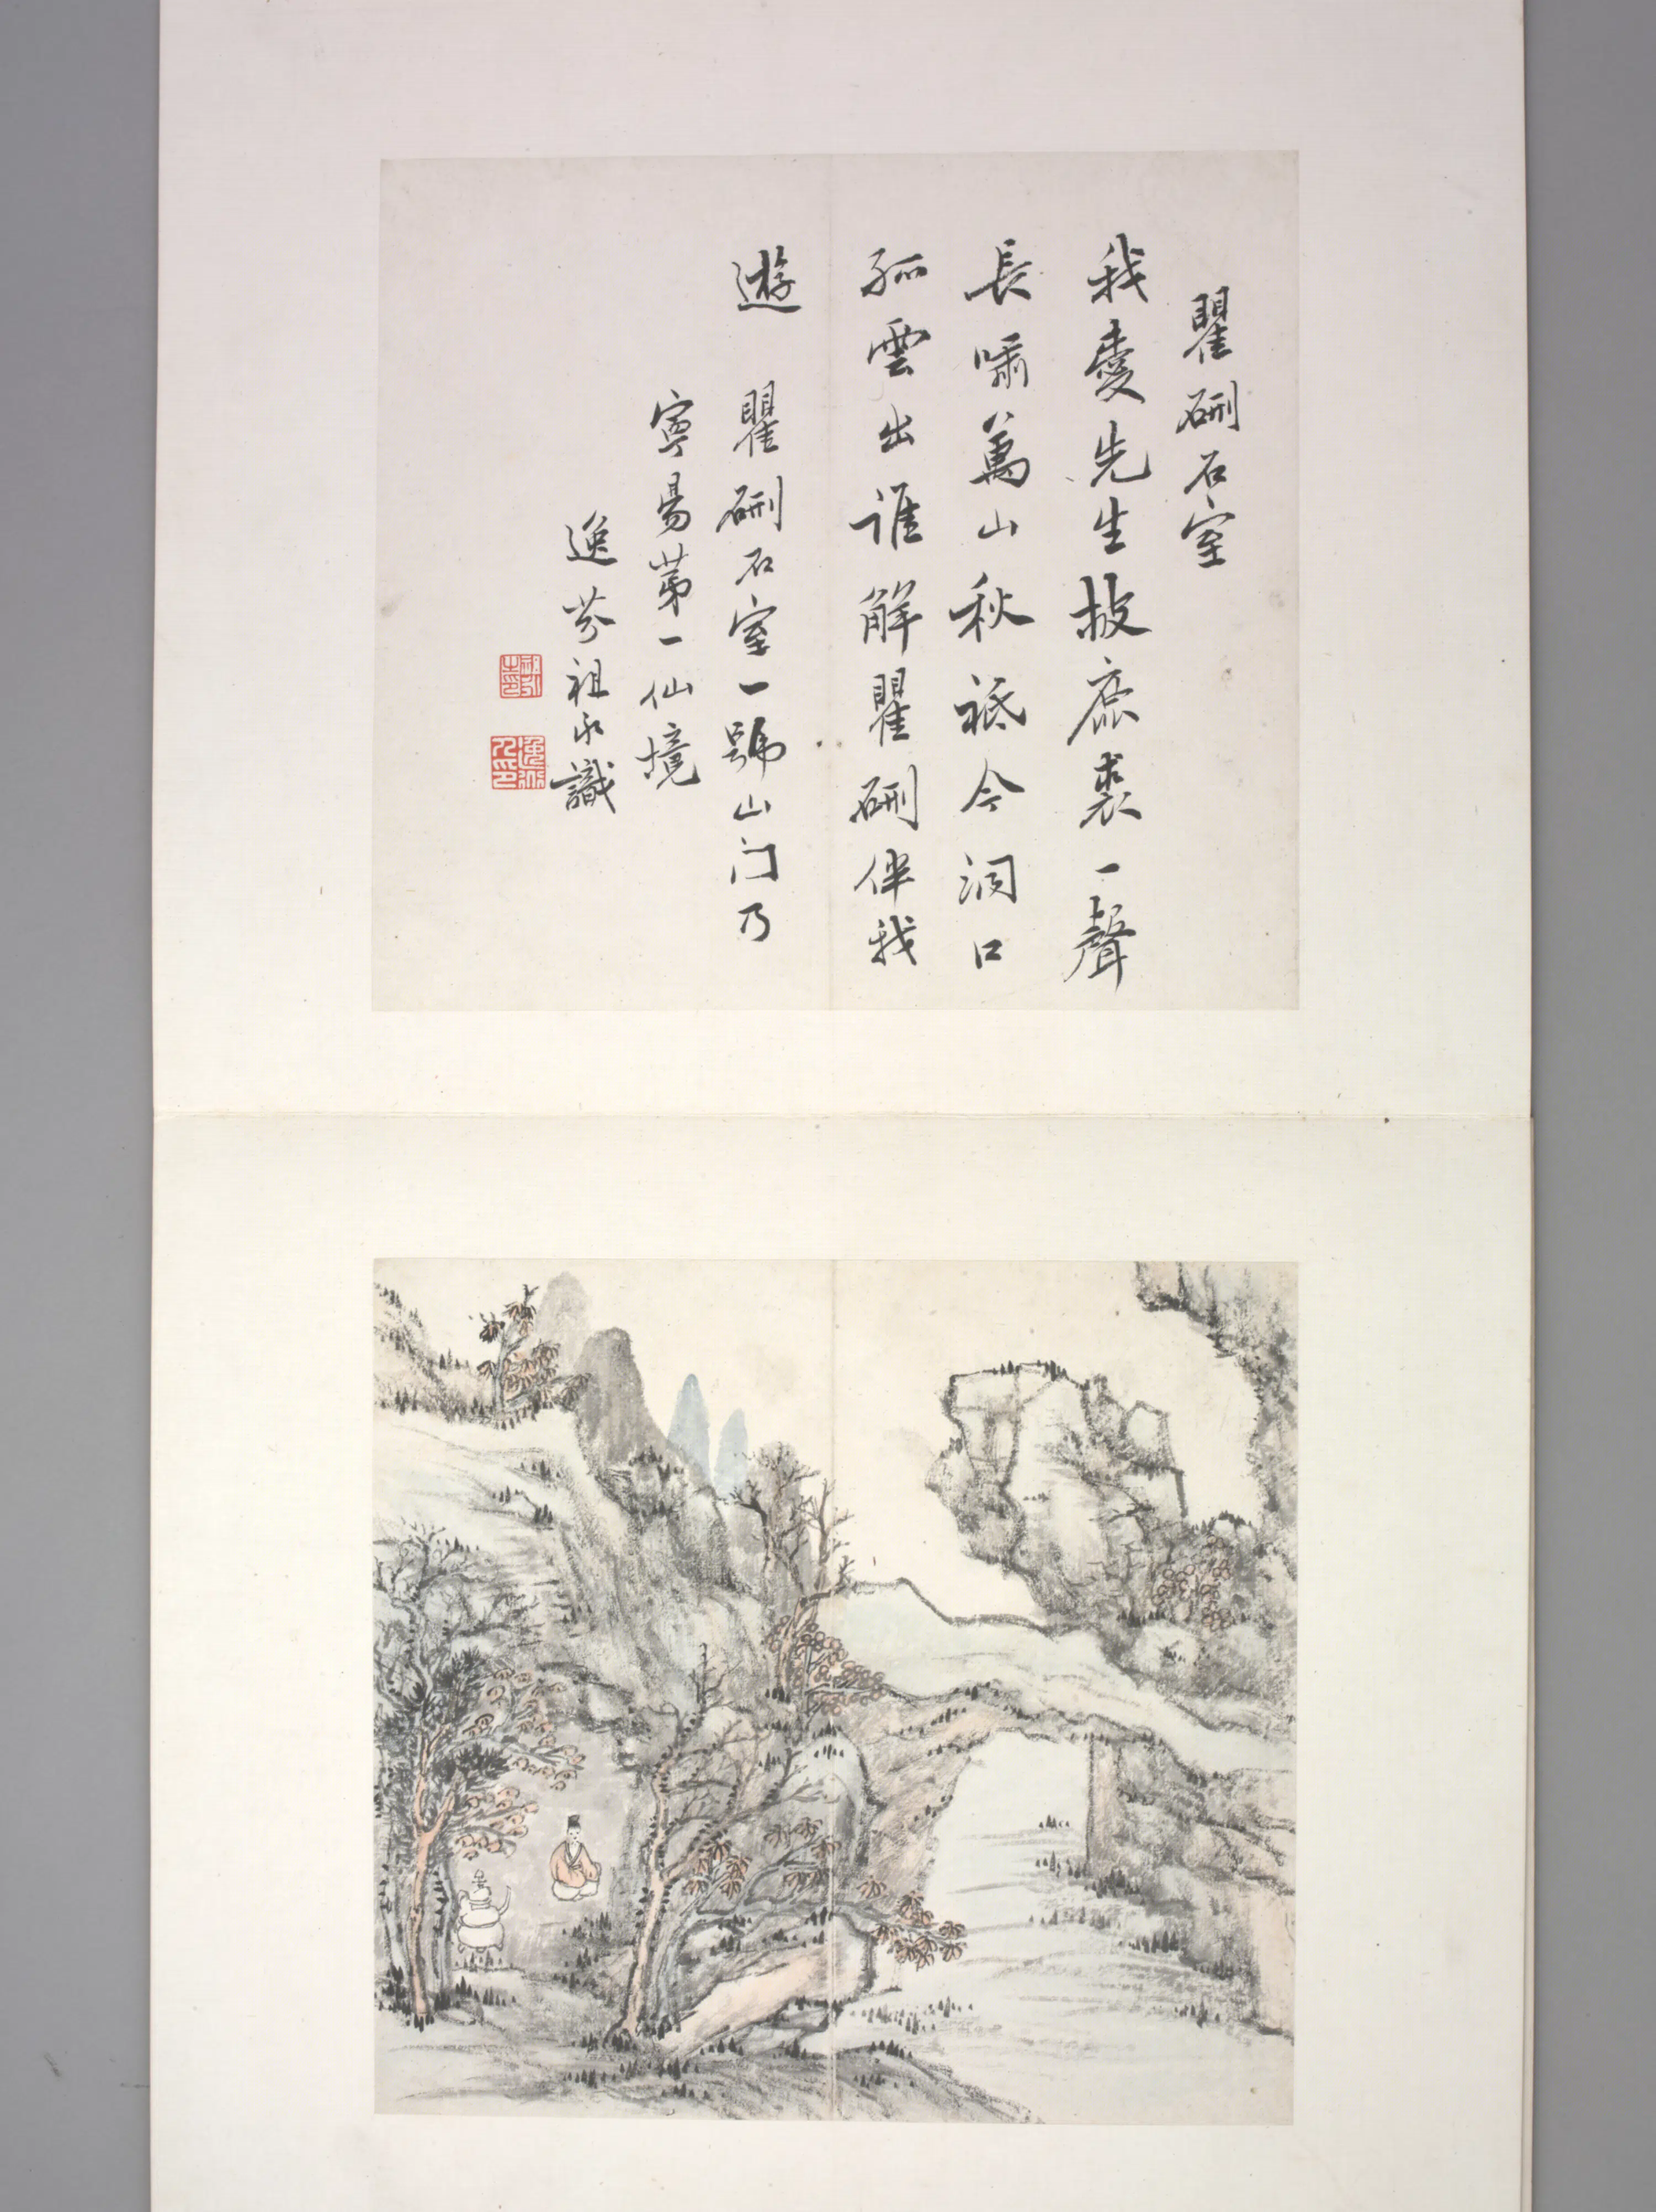 瞿硎石室
我愛先生披鹿裘一聲
長嘯萬山秋祗今洞口
孤雲出誰解瞿硎伴我
遊 瞿硎石室一號山门乃
寧昜苐一仙境
逸芬祖永識